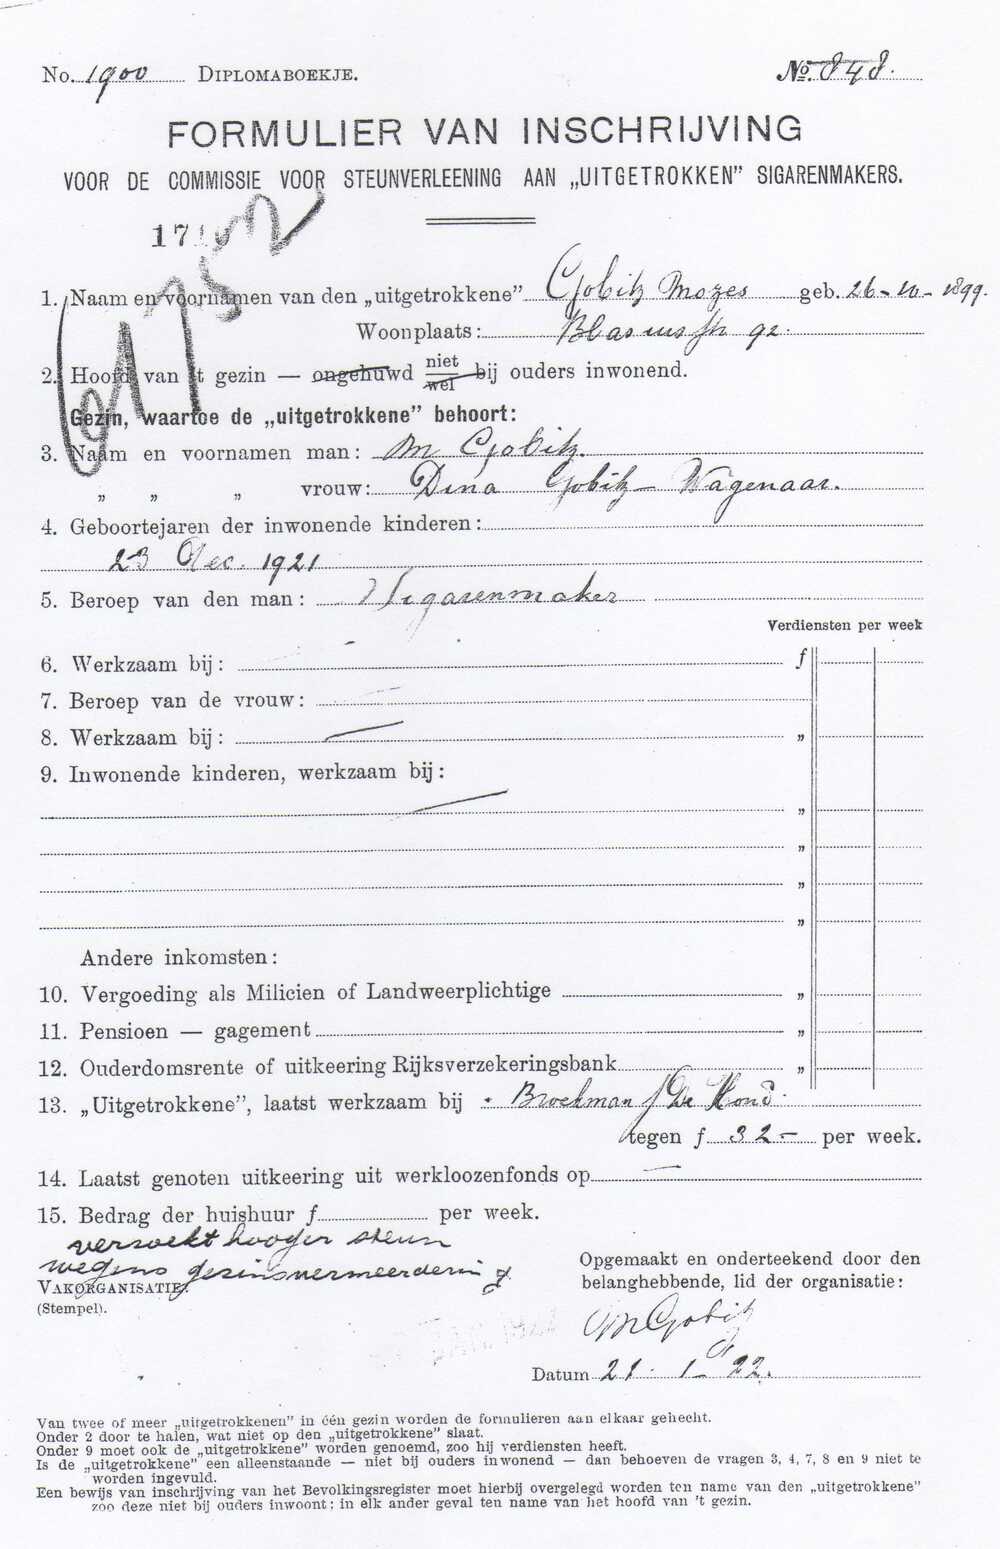 No. 1900 Diplomaboekje. No. 848.
FORMULIER VAN INSCHRIJVING
VOOR DE COMMISSIE VOOR STEUNVERLEENING AAN „UITGETROKKEN” SIGARENMAKERS.
1. Naam en voornamen van den „uitgetrokkene” Gobitz Mozes geb. 26-10-1899.
Woonplaats: Blasiusstr 92.
2. Hoofd van 't gezin — ongehuwd niet wel bij ouders inwonend.
Gezin, waartoe de „uitgetrokkene” behoort:
3. Naam en voornamen man: M Gobitz.
„ „ „ vrouw: Dina Gobitz-Wagenaar.
4. Geboortejaren der inwonende kinderen:
23 Dec. 1921
5. Beroep van den man: Sigarenmaker
Verdiensten per week
6. Werkzaam bij: f
7. Beroep van de vrouw:
8. Werkzaam bij: „
9. Inwonende kinderen, werkzaam bij:
„
„
„
„
Andere inkomsten:
10. Vergoeding als Milicien of Landweerplichtige „
11. Pensioen — gagement „
12. Ouderdomsrente of uitkeering Rijksverzekeringsbank „
13. „Uitgetrokkene”, laatst werkzaam bij Broekman / De Hond
tegen f 32- per week.
14. Laatst genoten uitkeering uit werkloozenfonds op —
15. Bedrag der huishuur f per week.
verzoekt hooger steun
wegens gezinsvermeerdering
Opgemaakt en onderteekend door den
belanghebbende, lid der organisatie:
Vakorganisatie.
(Stempel).
M Gobitz
Datum 21-1-22.
Van twee of meer „uitgetrokkenen” in één gezin worden de formulieren aan elkaar gehecht.
Onder 2 door te halen, wat niet op den „uitgetrokkene” slaat.
Onder 9 moet ook de „uitgetrokkene” worden genoemd, zoo hij verdiensten heeft.
Is de „uitgetrokkene” een alleenstaande — niet bij ouders inwonend — dan behoeven de vragen 3, 4, 7, 8 en 9 niet te
worden ingevuld.
Een bewijs van inschrijving van het Bevolkingsregister moet hierbij overgelegd worden ten name van den „uitgetrokkene”
zoo deze niet bij ouders inwoont; in elk ander geval ten name van het hoofd van 't gezin.